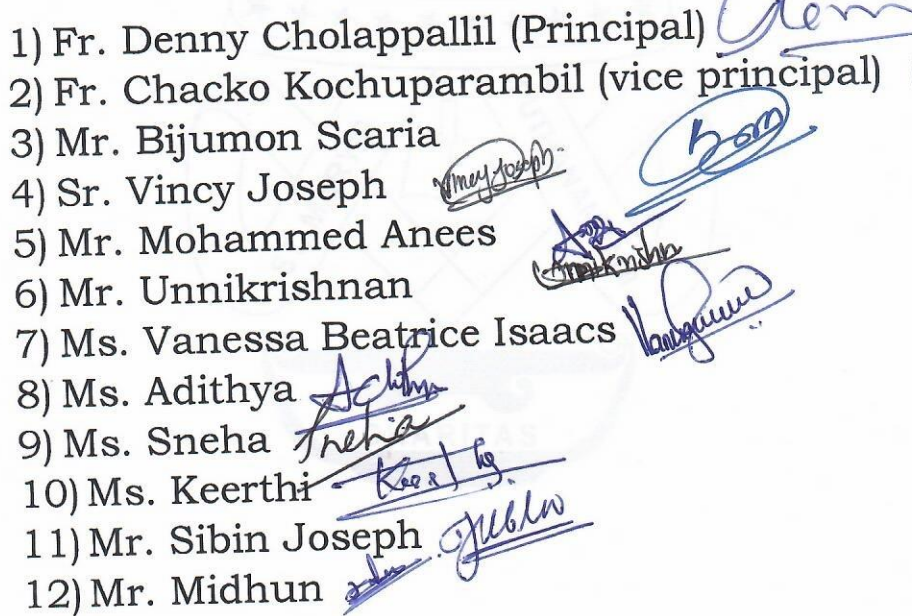 1) Fr. Denny Cholappallil (Principal)
2) Fr. Chacko Kochuparambil (vice principal)
3) Mr. Bijumon Scaria
4) Sr. Vincy Joseph Vincy Joseph
5) Mr. Mohammed Anees
6) Mr. Unnikrishnan Unnikrishn
7) Ms. Vanessa Beatrice Isaacs
8) Ms. Adithya Adithya
9) Ms. Sneha Sneha
10) Ms. Keerthi Keerthi
11) Mr. Sibin Joseph
12) Mr. Midhun